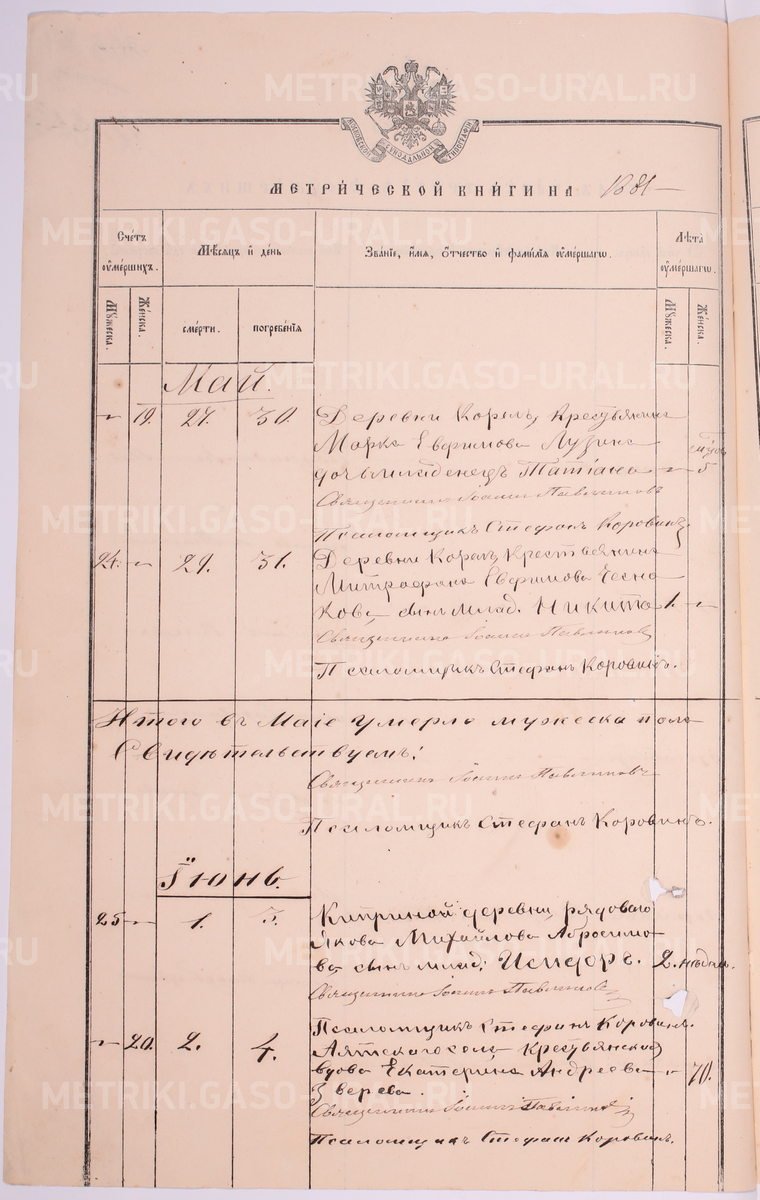 КІЕВСКОЙ СѴНОДАЛЬНОЙ ТИПОГРАФІИ
МЕТРИ́ЧЕСКОЙ КНИ́ГИ НА 1881
Сче́тъ оу҆ме́ршихъ.
Мѣ́сяцъ и҆ де́нь
Зва́нїе, и҆́мя, ѻ҆́тчество и҆ фами́лїя оу҆ме́ршагѡ.
Лѣ́та оу҆ме́ршагѡ.
Мꙋ́жеска.
Же́нска.
сме́рти.
погребе́нїя
Мꙋ́жеска.
Же́нска.
Май.
19. 27. 30. Деревни Корелъ, Крестьянина
Марка Евфимова Лузина
дочь младенецъ Татіана 5
Священникъ Іоаннъ Павлиновъ
Псаломщикъ Стефанъ Коровинъ
24. 29. 31. Деревни Корелъ Крестьянина
Митрофана Евфимова Чесно
кова сынъ млад. Никита 1.
Священникъ Іоаннъ Павлиновъ
Псаломщикъ Стефанъ Коровинъ.
Итого въ Маіе умерло мужеска пола
Свидѣтельствуемъ:
Священникъ Іоаннъ Павлиновъ
Псаломщикъ Стефанъ Коровинъ.
Іюнь.
25 1. 3. Киприной деревни, рядоваго
Якова Михайлова Абросимо
ва сынъ млад; Исидоръ. 2. недѣль.
Священникъ Іоаннъ Павлиновъ
Псаломщикъ Стефанъ Коровинъ.
20. 2. 4. Аятскаго села Крестьянская
вдова Екатерина Андреева 70.
Зверева.
Священникъ Іоаннъ Павлиновъ
Псаломщикъ Стефанъ Коровинъ.
METRIKI.GASO-URAL.RU